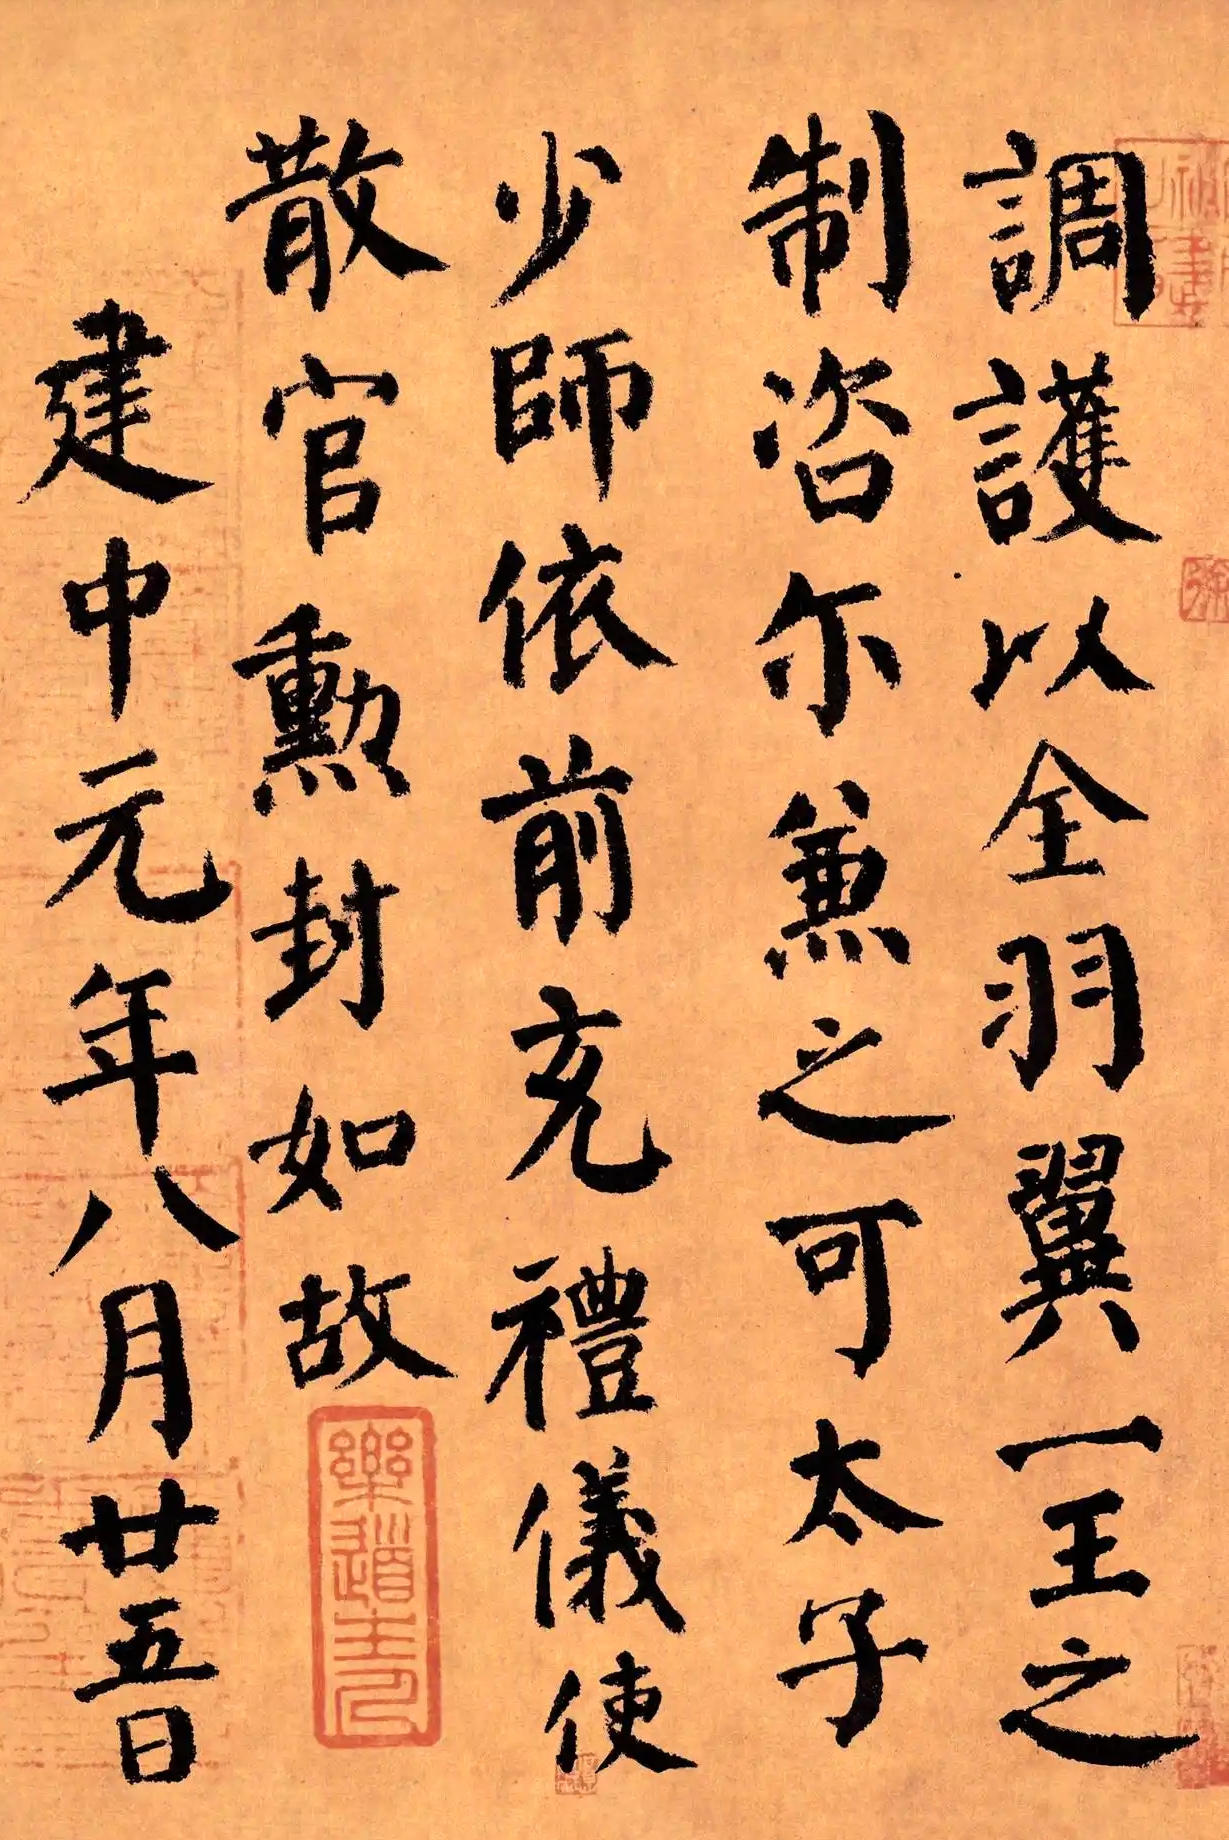 調護以全羽翼一王之
制咨尓兼之可太子
少師依前充禮儀使
散官勲封如故
建中元年八月廿五日